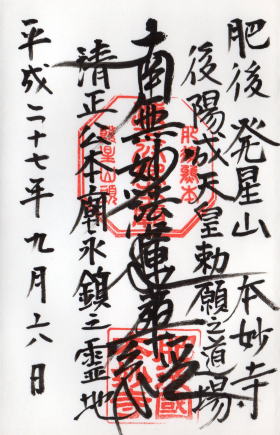 肥後 発星山 本妙寺
後陽成天皇勅願之道場
南無妙法蓮華経
清正公本廟永鎮之霊地
平成二十七年九月十六日